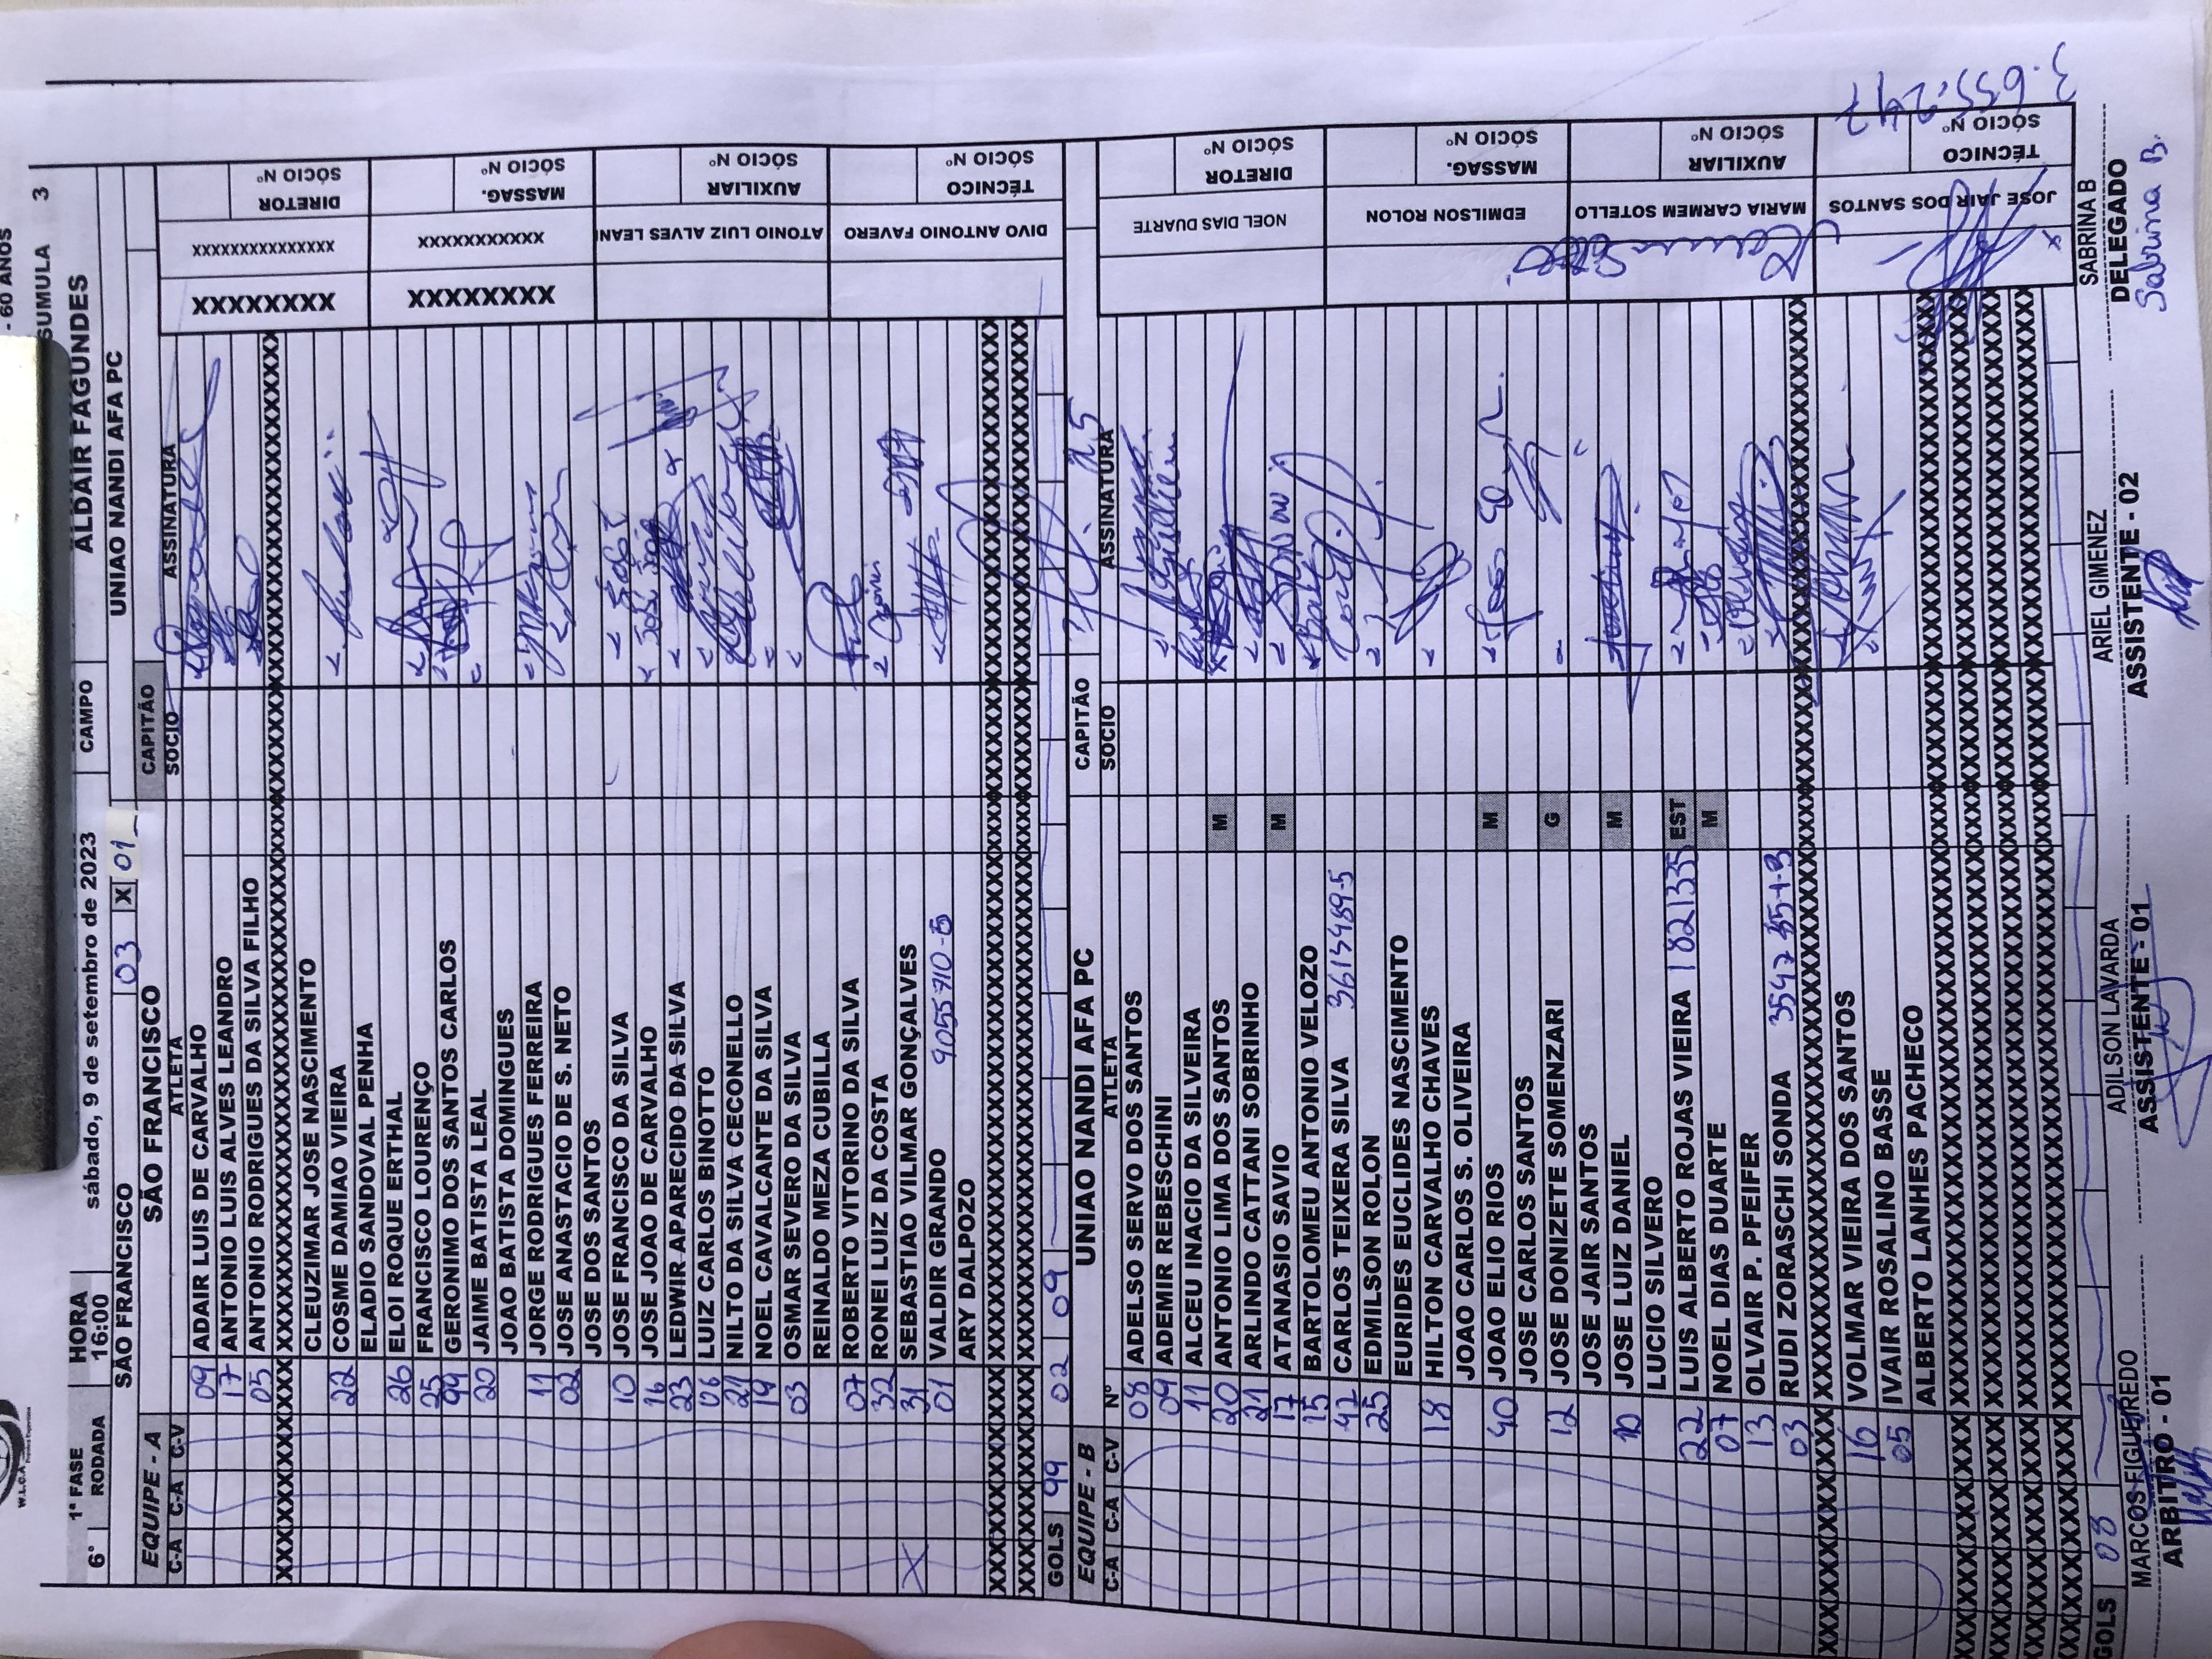 - 60 ANOS
W.L.C.A
1ª FASE HORA CAMPO ALDAIR FAGUNDES SUMULA 3
6° RODADA 16:00 sábado, 9 de setembro de 2023
SÃO FRANCISCO 03 X 01 UNIAO NANDI AFA PC
EQUIPE - A SÃO FRANCISCO CAPITÃO
C-A C-A C-V ATLETA SOCIO ASSINATURA
09 ADAIR LUIS DE CARVALHO
17 ANTONIO LUIS ALVES LEANDRO
05 ANTONIO RODRIGUES DA SILVA FILHO
CLEUZIMAR JOSE NASCIMENTO
22 COSME DAMIAO VIEIRA
ELADIO SANDOVAL PENHA
26 ELOI ROQUE ERTHAL
25 FRANCISCO LOURENÇO
99 GERONIMO DOS SANTOS CARLOS
20 JAIME BATISTA LEAL
JOAO BATISTA DOMINGUES
11 JORGE RODRIGUES FERREIRA
02 JOSE ANASTACIO DE S. NETO
JOSE DOS SANTOS
10 JOSE FRANCISCO DA SILVA
16 JOSE JOAO DE CARVALHO
23 LEDWIR APARECIDO DA SILVA
06 LUIZ CARLOS BINOTTO
21 NILTO DA SILVA CECONELLO
19 NOEL CAVALCANTE DA SILVA
03 OSMAR SEVERO DA SILVA
REINALDO MEZA CUBILLA
07 ROBERTO VITORINO DA SILVA
32 RONEI LUIZ DA COSTA
X 31 SEBASTIAO VILMAR GONÇALVES
01 VALDIR GRANDO 9055710-B
ARY DALPOZO
XXXXXXXX XXXXXXXXXXXXXXX DIRETOR SÓCIO Nº
XXXXXXXX XXXXXXXXXXX MASSAG. SÓCIO Nº
ATONIO LUIZ ALVES LEAN AUXILIAR SÓCIO Nº
DIVO ANTONIO FAVERO TÉCNICO SÓCIO Nº
GOLS 99 02 09
EQUIPE - B UNIAO NANDI AFA PC CAPITÃO
C-A C-A C-V Nº ATLETA SOCIO ASSINATURA
08 ADELSO SERVO DOS SANTOS
09 ADEMIR REBESCHINI
11 ALCEU INACIO DA SILVEIRA
20 ANTONIO LIMA DOS SANTOS M
21 ARLINDO CATTANI SOBRINHO
17 ATANASIO SAVIO M
15 BARTOLOMEU ANTONIO VELOZO
42 CARLOS TEIXERA SILVA
25 EDMILSON ROLON
EURIDES EUCLIDES NASCIMENTO
18 HILTON CARVALHO CHAVES
JOAO CARLOS S. OLIVEIRA
40 JOAO ELIO RIOS M
JOSE CARLOS SANTOS
12 JOSE DONIZETE SOMENZARI G
JOSE JAIR SANTOS
10 JOSE LUIZ DANIEL M
LUCIO SILVERO
22 LUIS ALBERTO ROJAS VIEIRA 1821335 EST
07 NOEL DIAS DUARTE M
13 OLVAIR P. PFEIFER
03 RUDI ZORASCHI SONDA
16 VOLMAR VIEIRA DOS SANTOS
05 IVAIR ROSALINO BASSE
ALBERTO LANHES PACHECO
NOEL DIAS DUARTE DIRETOR SÓCIO Nº
EDMILSON ROLON MASSAG. SÓCIO Nº
MARIA CARMEM SOTELLO AUXILIAR SÓCIO Nº
JOSE JAIR DOS SANTOS TÉCNICO SÓCIO Nº
3.655.247
GOLS 08
MARCOS FIGUEIREDO ADILSON LAVARDA ARIEL GIMENEZ SABRINA B
ARBITRO - 01 ASSISTENTE - 01 ASSISTENTE - 02 DELEGADO
Sabrina B.